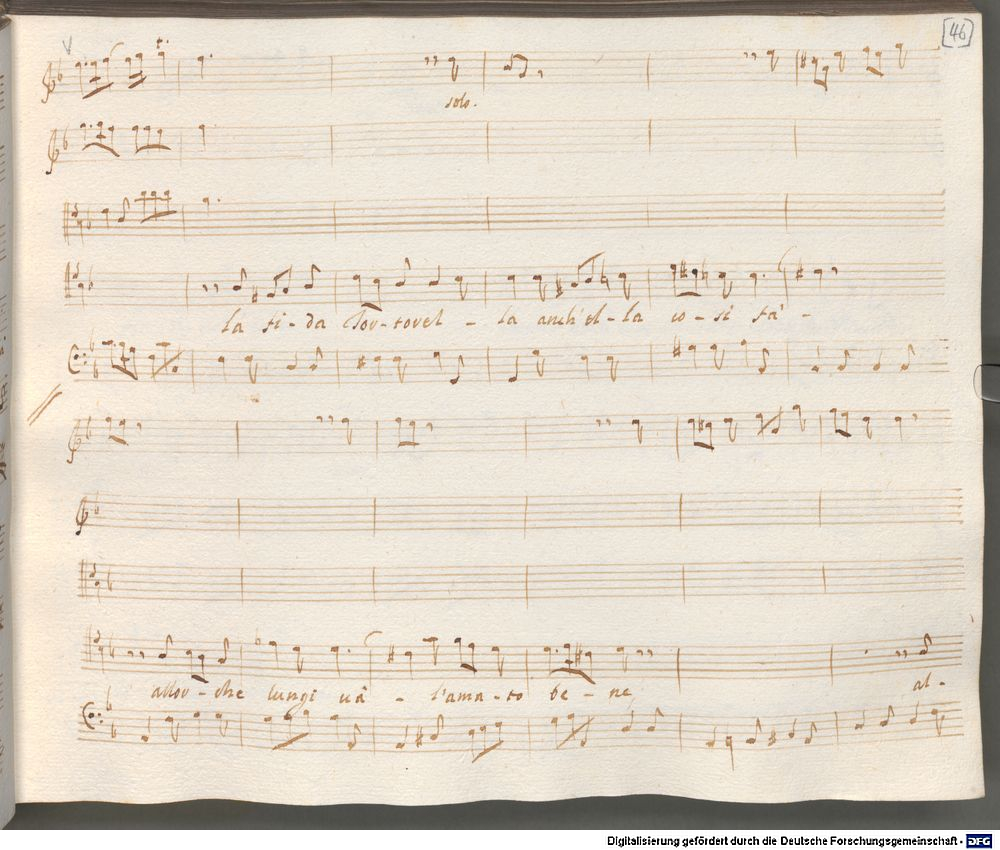 [46]
solo.
la fi-da Tor-torel - la anch'el-la co-si fà -
allor-che lungi uà - l'ama-to be-ne,
al-
Digitalisierung gefördert durch die Deutsche Forschungsgemeinschaft - DFG